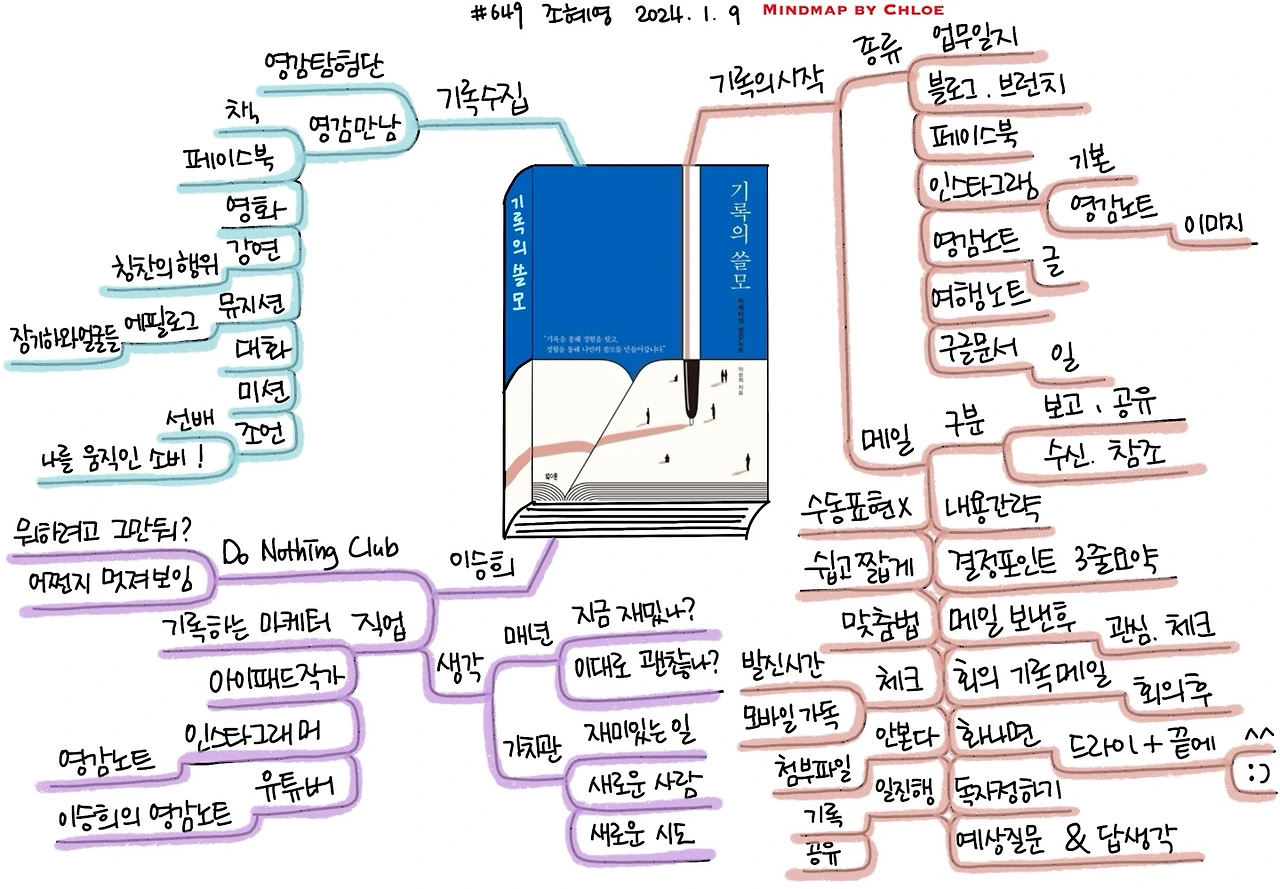 #649 조혜영 2024. 1. 9 MINDMAP BY CHLOE
기록의 쓸모
기록의 쓸모
마케터의 영감노트
이승희 지음
"기록을 통해 경험을 쌓고,
경험을 통해 나만의 쓸모를 만들어갑니다"
북스톤
기록의시작
종류
업무일지
블로그 . 브런치
페이스북
인스타그램
기본
영감노트
이미지
영감노트
글
여행노트
구글문서
일
메일
구분
보고 . 공유
수신. 참조
수동표현X
내용간략
쉽고짧게
결정포인트 3줄요약
맞춤법
메일 보낸후
관심. 체크
체크
발신시간
모바일가독
회의 기록메일
회의후
안본다
첨부파일
화나면
드라이 + 끝에
^^
:)
일진행
기록
공유
독자정하기
예상질문 & 답생각
이승희
Do Nothing Club
뭐하려고 그만둬?
어쩐지 멋져보임
직업
기록하는 마케터
아이패드작가
인스타그래머
영감노트
유튜버
이승희의 영감노트
생각
매년
지금 재밌나?
이대로 괜찮나?
가치관
재미있는 일
새로운 사람
새로운 시도
기록수집
영감탐험단
영감만남
책
페이스북
영화
강연
칭찬의행위
뮤지션
에필로그
장기하와얼굴들
대화
미션
조언
선배
나를 움직인 소비 !